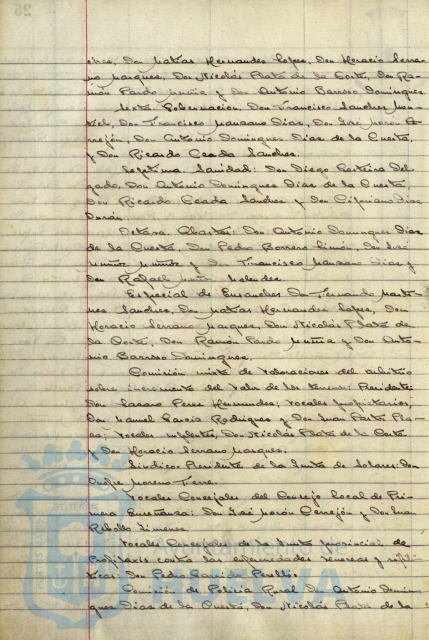 ches, Don Matias Hernandez Lopez, Don Horacio Serra-
no Marquez, Don Nicolás Plata de la Corte, Don Ra-
món Pardo Muñiz y Don Antonio Barroso Dominguez.
Sexta. Gobernacion, Don Francisco Sanchez Mon-
tiel, Don Francisco Manzano Diaz, Don José Moron Ce-
rrejón, Don Antonio Dominguez Diaz de la Cuesta,
y Don Ricardo Ceada Sanchez.
Septima. Sanidad: Don Diego Del-
gado, Don Antonio Dominguez Diaz de la Cuesta,
Don Ricardo Ceada Sanchez y Don Cipriano Diaz
Durán.
Octava. Abastos: Don Antonio Dominguez Diaz
de la Cuesta, Don Pedro Borrero Limón, Don José
Muñiz Muñiz y Don Francisco Manzano Diaz y
Don Rafael
Especial de Ensanches Don Fernando Marti-
nez Sanchez, Don Matias Hernandez Lopez, Don
Horacio Serrano Marquez, Don Nicolás Plata de
la Corte, Don Ramón Pardo Muñiz y Don Anto-
nio Barroso Dominguez.
Comisión mixta de valoraciones del arbitrio
sobre incremento del valor de los terrenos: Presidente:
Don Lazaro Perez Hernandez; vocales propietarios,
Don Manuel Garcia Rodriguez y Don Juan
vocales suplentes, Don Nicolás Plata de la Corte
y Don Horacio Serrano Marquez.
Sindico Presidente de la Junta de Solares: Don
Moreno
Vocales Concejales del Consejo Local de Pri-
mera Enseñanza: Don José Morón Cerrejón y Don Juan
Rebollo Jimenez.
Vocales Concejales de la Junta provincial de
Profilaxis contra las enfermedades venereas y sifili-
ticas: Don Pedro Garrido Perelló.
Comisión de Policia Rural Don Antonio Domin-
guez Diaz de la Cuesta, Don Nicolás Plata de la
Ayuntamiento de